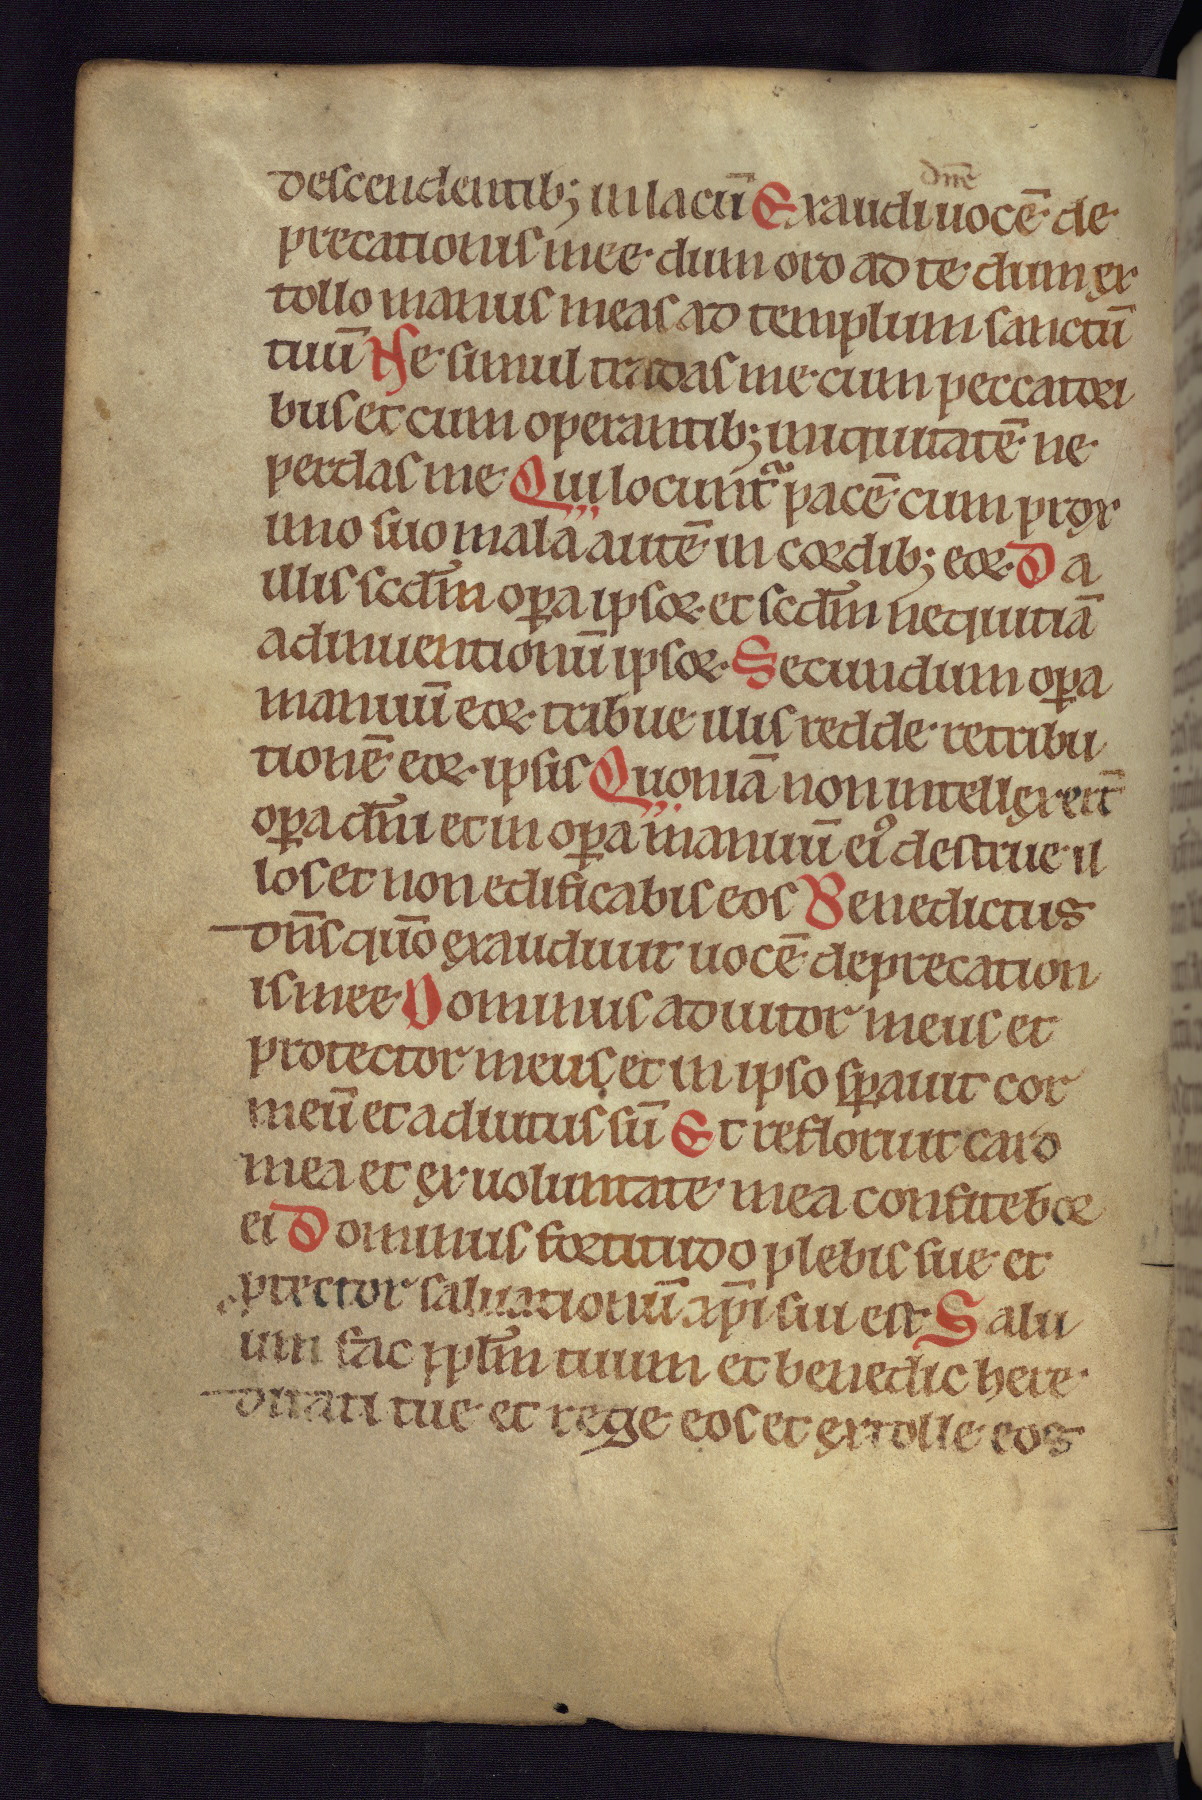 descendentib; in lacū Exaudi dn̄e uocē de
precationis mee dum oro ad te dum ex
tollo manus meas ad templum sanctū
tuū Ne simul tradas me cum peccatori
bus et cum operantib; iniquitatē ne
perdas me Qui locunt᷑ pacē cum prox
imo suo mala autē in cordib; eoꝝ Da
illis scdm̄ oꝑa ipsoꝝ et scdm̄ nequitiā
adinuentionū ipsoꝝ Secundum oꝑa
manuū eoꝝ tribue illis redde retribu
tionē eoꝝ ipsis Quoniā non intellexert̄
oꝑa dn̄i et in oꝑa manuū eiꝰ destrue il
los et non edificabis eos Benedictus
dn̄s qm̄o exaudiuit uocē deprecation
is mee Dominus adiutor meus et
protector meus et in ipso sꝑauit cor
meū et adiutus sū Et refloruit caro
mea et ex uoluntate mea confiteboꝝ
ei Dominus fortitudo plebis sue et
ptector saluationū xp̄i sui est Salu
um fac pplm̄ tuum et benedic here
ditati tue et rege eos et extolle eos